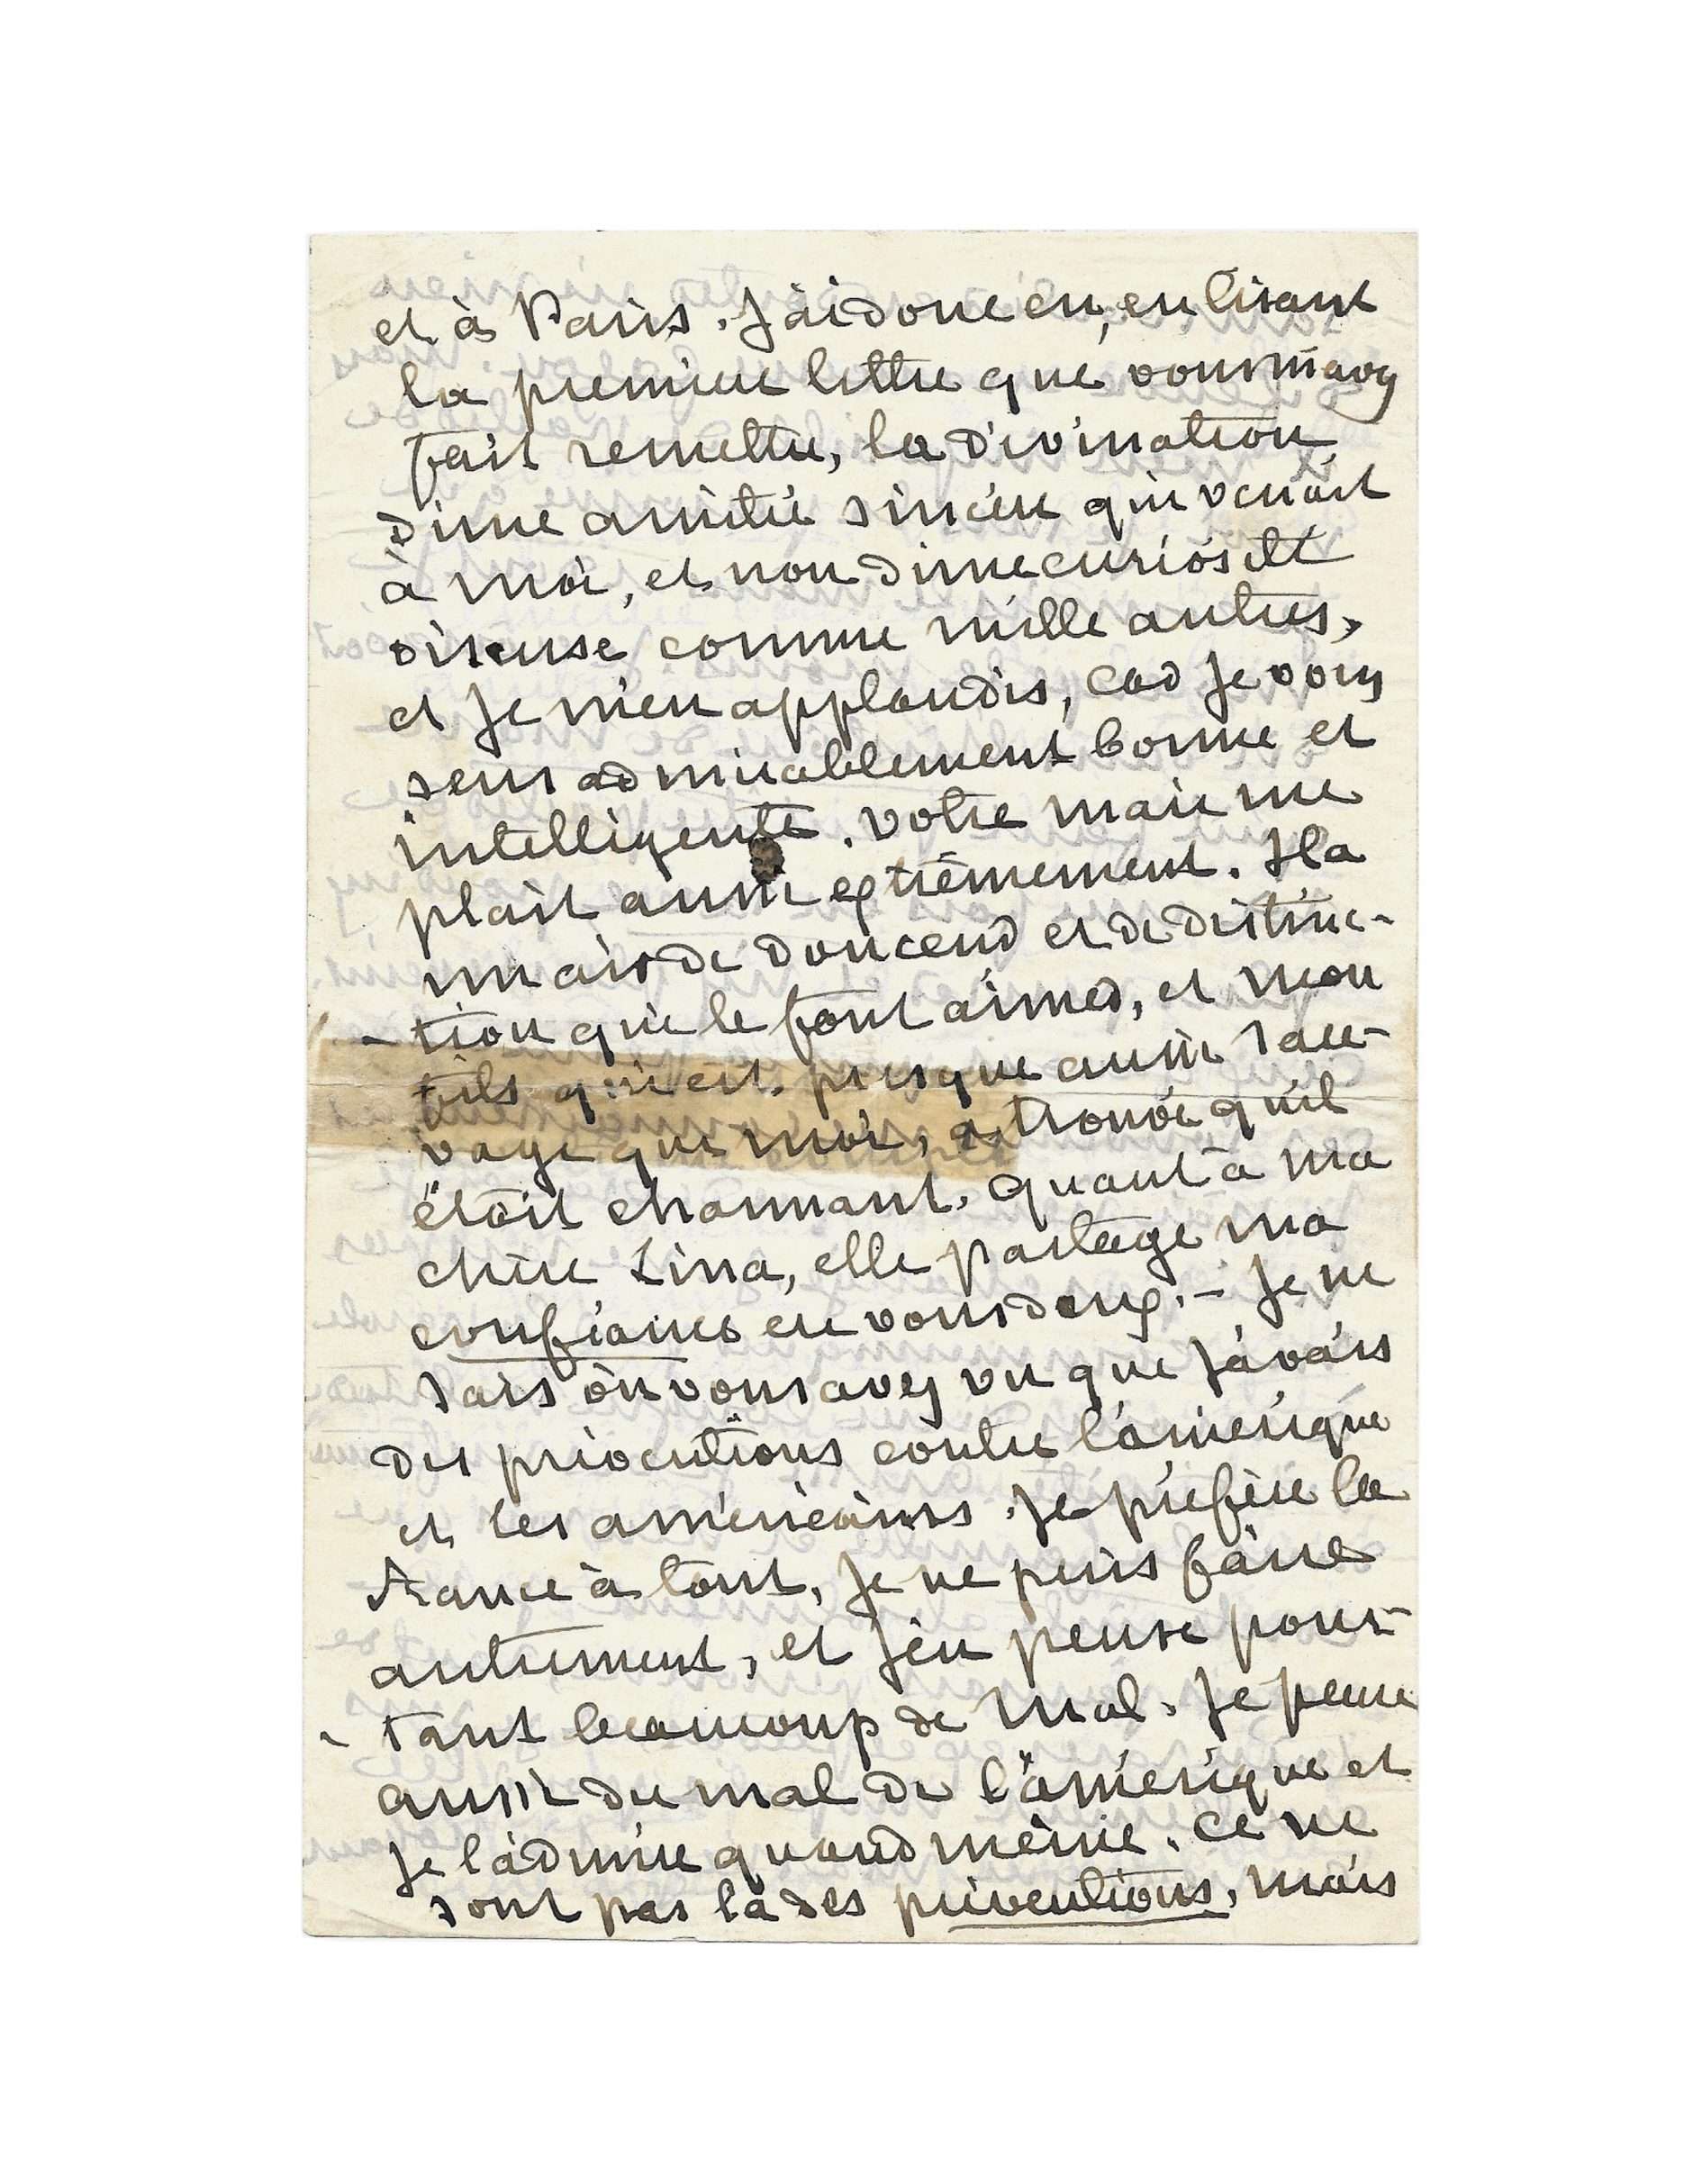 et à Paris. J'ai donc eu, en lisant
la première lettre que vous m'avez
fait remettre, la divination
d'une amitié sincère qui venait
à moi, et non d'une curiosité
oiseuse comme mille autres,
et je m'en applaudis, car je vous
sens admirablement bonne et
intelligente. votre mari me
plait aussi extrêmement. Il a
mais de douceur et de distinc-
-tion qui le font aimer, et mon
fils qui est presque aussi sau-
vage que moi, a trouvé qu'il
était charmant. quant à ma
chère Lina, elle partage ma
confiance en vous deux. – Je ne
sais où vous avez vu que j'avais
des préventions contre l'amérique
et les américains. Je préfère la
France à tout, je ne puis faire
autrement, et j'en pense pour-
-tant beaucoup de mal. Je pense
aussi du mal de l'amérique et
je l'admire quand même. Ce ne
sont pas là des préventions, mais